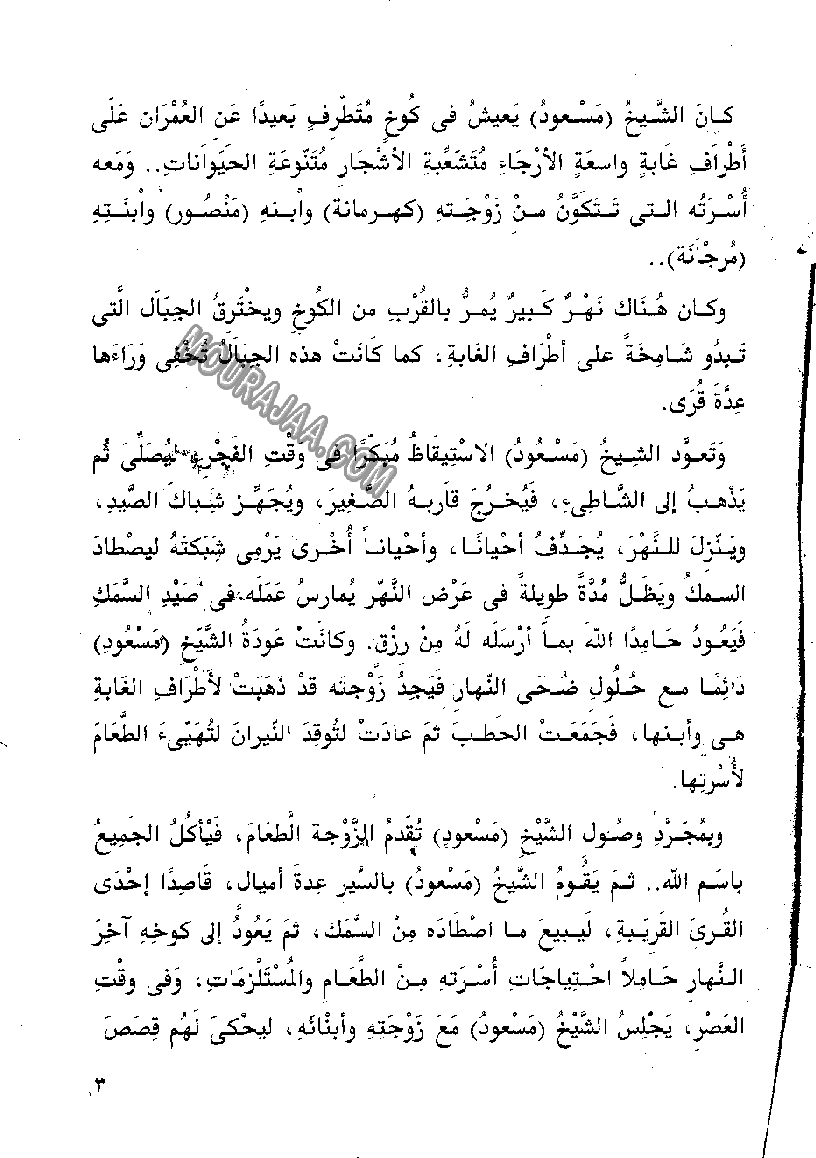 كـانَ الشَّـيخُ (مَسْـعودُ) يَعيشُ فى كُوخٍ مُتَطَرِّفٍ بَعيدًا عَن العُمْرَان عَلَى
أطْرَافِ غَابةٍ واسعَةِ الأرْجَاءِ مُتَشَعِّبةِ الأشْجَار مُتَنَّوعَةِ الحَيَوَانَات.. وَمَعه
أُسْـرَتُه الـتى تَـتَكَوَّنُ مـنْ زَوْجَـتهِ (كهـرمانة) وأبـنهِ (مَنْصُـور) وأبنَـتِهِ
(مُرجْانَة)..
وكـان هُـنَاك نَهْـرٌ كَـبيرٌ يُمـرُّ بالقُرْبِ من الكُوخِ ويخْتَرقُ الجبَالَ الَّتى
تَـبدُو شَـامِخَةً على أطْرَافِ الغَابةِ، كما كَانَتْ هذه الجبَالُ تُخْفِى وَرَاءَها
عِدَّةَ قُرَى.
وَتَعوَّد الشـيخُ (مَسْـعُودُ) الاسْتِيقَاظُ مُبَكِّرًا فى وَقْتِ الفَجْرِ، يُصَلِّىَ ثُم
يَذْهَـبُ إلى الشَّـاطىءِ، فَيُخـرجَ قَاربـهُ الصَّـغيرَ، ويُجَهِّـز شِـبَاكَ الصَّيدِ،
ويَـنْزِلَ للـنَّهْرَ، يُجَـدِّفُ أحْيانًـا، وأحْيانـاً أُخْـرىَ يَرْمِى شِبَكَتَهُ ليصْطَادَ
السـمكُ ويَظَـلُّ مُدَّةً طويلةً فى عَرْض النَّهْر يُمارسُ عَمَلَه فى صَيْدِ السَّمَكِ
فَيَعُـودُ حَـامِدًا اللهَ بمـا أَرْسَـلَه لَهُ مِنْ رزْقٍ. وكَانَتْ عَودَةُ الشَّيَخ (مَسْعُودِ)
دَائِمًـا مـع حُـلُولِ ضُـحَى النَّـهار فَيَجدُ زَوْجتَه قدْ ذَهَبَتْ لأطْرَافِ الغَابةِ
هـى وأبـنها، فَجَمَعَـتْ الحَطَـبَ ثمَ عادَتْ لتُوقِدَ النيرانَ لتُهَيِّىءَ الطَّعَامَ
لأُسْرتِها.
وبمُجَـرَّدِ وصُـول الشَّيْخِ (مَسْعودِ) تُقَدمُ الزَّوْجةَ الطَّعَامَ، فَيأكُلُ الجميعُ
باسَم الله.. ثـمَ يَقُـومُ الشَّيخُ (مَسْعودُ) بالسَّير عِدةَ أميال، قَاصدًا إحْدَى
القُـرىَ القَرِيَـبةِ، لَيـبيعَ مـا اصْطَادَه مِنْ السَّمَك، ثمَ يَعُودُ إلى كوخهِ آخِرَ
الـنَّهار حَـاملاً احْـتِياجَاتِ أُسْـرَته مِـنْ الطَّعَـام والمُسْتَلْزمَات، وَفى وقْتِ
العَصْر، يَجْلِسُ الشَّيْخُ (مَسْعودُ) مَعَ زَوْجَتهِ وأبنْائه، ليحْكىَ لَهُم قِصَصَ
٣
MOURAJAA.COM